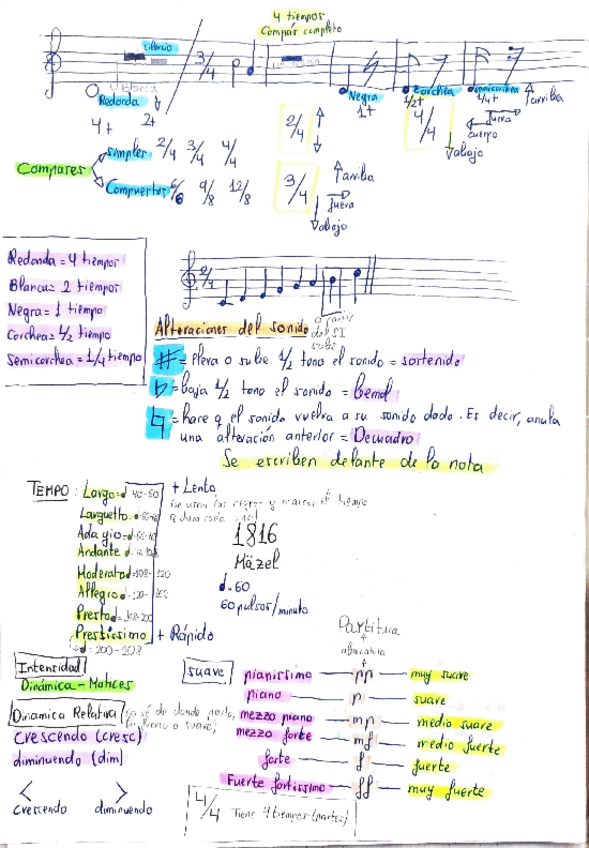 4 tiempos
Compás completo
silencio
3/4
Blanca
Redonda
4t 2t
Negra
1t
corchea
1/2t
semicorchea
1/4t
arriba
fuera
cuerpo
abajo
2/4
4/4
Compases
simples 2/4 3/4 4/4
Compuestos 6/8 9/8 12/8
3/4
arriba
fuera
abajo
Redonda = 4 tiempos
Blanca = 2 tiempos
Negra = 1 tiempo
Corchea = 1/2 tiempo
Semicorchea = 1/4 tiempo
2/4
a partir
del SI
sube
Alteraciones del sonido
# = eleva o sube 1/2 tono el sonido = sostenido
b = baja 1/2 tono el sonido = bemol
♮ = hace q el sonido vuelva a su sonido dado. Es decir, anula
una alteración anterior = Becuadro
Se escriben delante de la nota
TEMPO: Largo = 40-60 + Lento
Larguetto
Adagio
Andante
Moderato = 108-120
Allegro
Presto
Prestissimo + Rápido
= 200-208
1816
Mäzel
= 60
60 pulsos/minuto
Intensidad
Dinámica - Matices
Dinámica Relativa
crescendo (cresc)
diminuendo (dim)
< >
crescendo diminuendo
Partitura
abreviatura
suave
pianissimo — pp — muy suave
piano — p — suave
mezzo piano — mp — medio suave
mezzo forte — mf — medio fuerte
forte — f — fuerte
Fuerte fortissimo — ff — muy fuerte
4/4 Tiene 4 tiempos (partes)